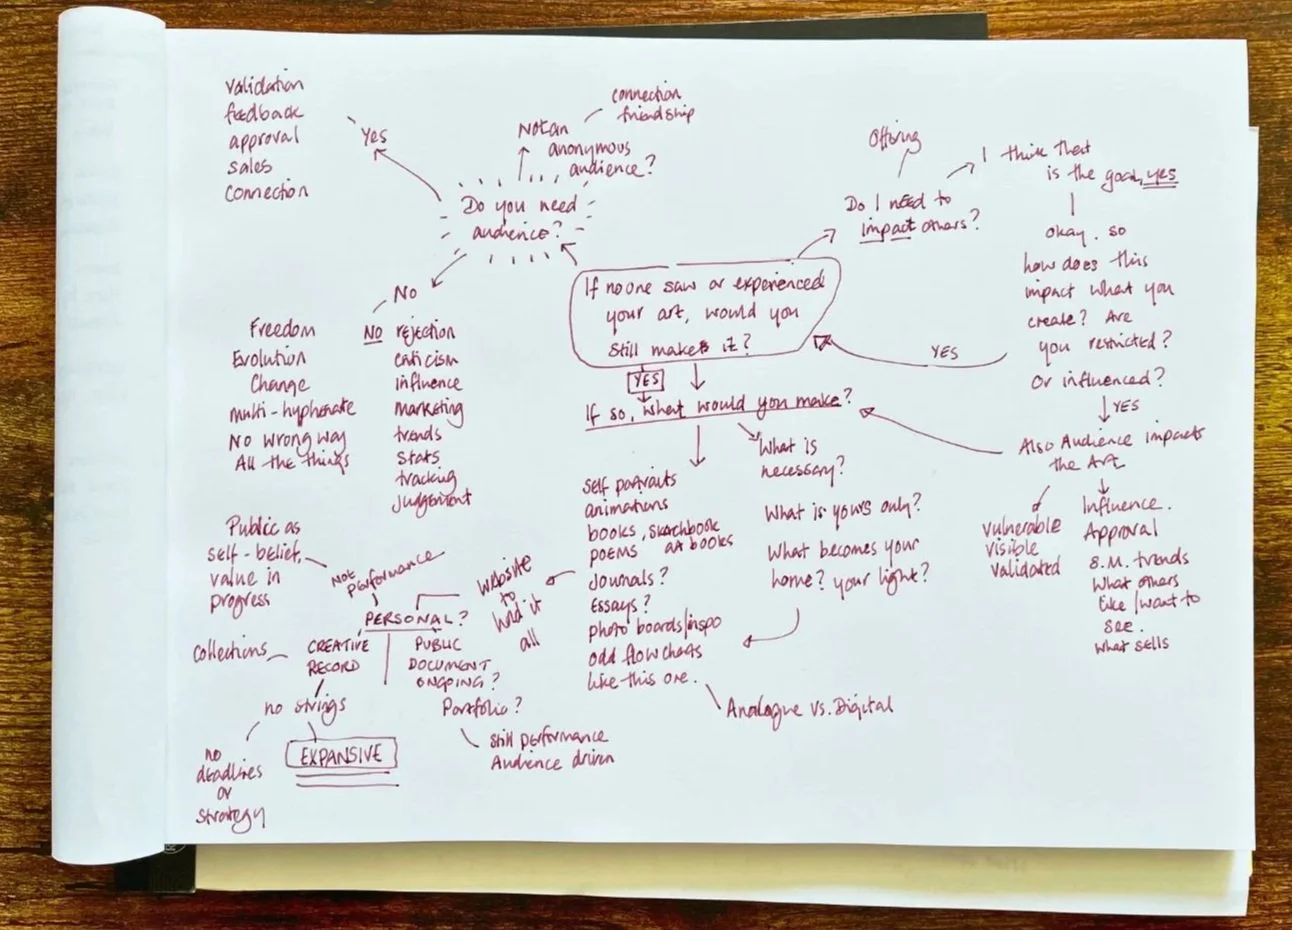 Validation
feedback
approval
sales
Connection
Yes
Not an
anonymous
audience?
connection
friendship
Do you need
audience?
Offering
Do I need to
impact others?
I think that
is the goal, yes
okay. so
how does this
impact what you
create? Are
you restricted?
Or influenced?
YES
Also Audience impacts
the Art
vulnerable
visible
validated
Influence.
Approval
S.M. trends
What others
like/want to
see.
what sells
YES
If no one saw or experienced
your art, would you
still make it?
YES
If so, what would you make?
What is
necessary?
What is yours only?
What becomes your
home? your light?
self portraits
animations
books, sketchbook
POEMS art books
Journals?
Essays?
photo boards/inspo
odd flow charts
like this one.
Analogue vs. Digital
No
Freedom
Evolution
Change
multi-hyphenate
No wrong way
All the things
NO rejection
criticism
influence
marketing
trends
stats
tracking
judgement
Public as
self-belief,
value in
progress
Not
performance
PERSONAL?
website
to
hold it
all
Collections
CREATIVE
RECORD
PUBLIC
DOCUMENT
ONGOING?
Portfolio?
still performance
Audience driven
no strings
no
deadlines
or
strategy
EXPANSIVE